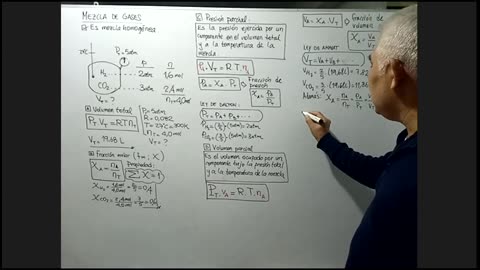 MEZCLA DE GASES
Es mezcla homogénea
P_T = 5atm
P
n
H₂ ... 2atm 1,6 mol
CO₂ ... 3atm 2,4 mol
V_T = ?
n_T = 4,0 mol
Volumen total
P_T . V_T = R.T.n_T
V_T = 19.68 L
P = 5atm
R = 0,082
T = 27°C = 300K
n_T = 4,0 mol
V_T = ?
Fracción molar
X_A = n_A / n_T
Propiedad:
∑ X = 1
X_H₂ = 1,6 mol / 4,0 mol = 0,4
X_CO₂ = 2,4 mol / 4,0 mol = 0,6
Presión parcial:
Es la presión ejercida por un
componente en el volumen total
y a la temperatura de la
mezcla.
P_A . V_T = R.T.n_A
P_A = X_A . P_T
Fracción de
presión
X_A = P_A / P_T
LEY DE DALTON:
P_T = P_A + P_B + ...
P_H₂ = (5atm) = 2atm
(5atm) = 3atm
Volumen parcial
Es el volumen ocupado por un
componente bajo la presión total
y a la temperatura de la mezcla
P_T . V_A = R.T.n_A
V_A = X_A . V_T
Fracción de
volumen
X_A =
LEY DE AMAGAT
V_T = V_A + V_B + ...
Además:
X_A = n_A / n_T = P_A / P_T =